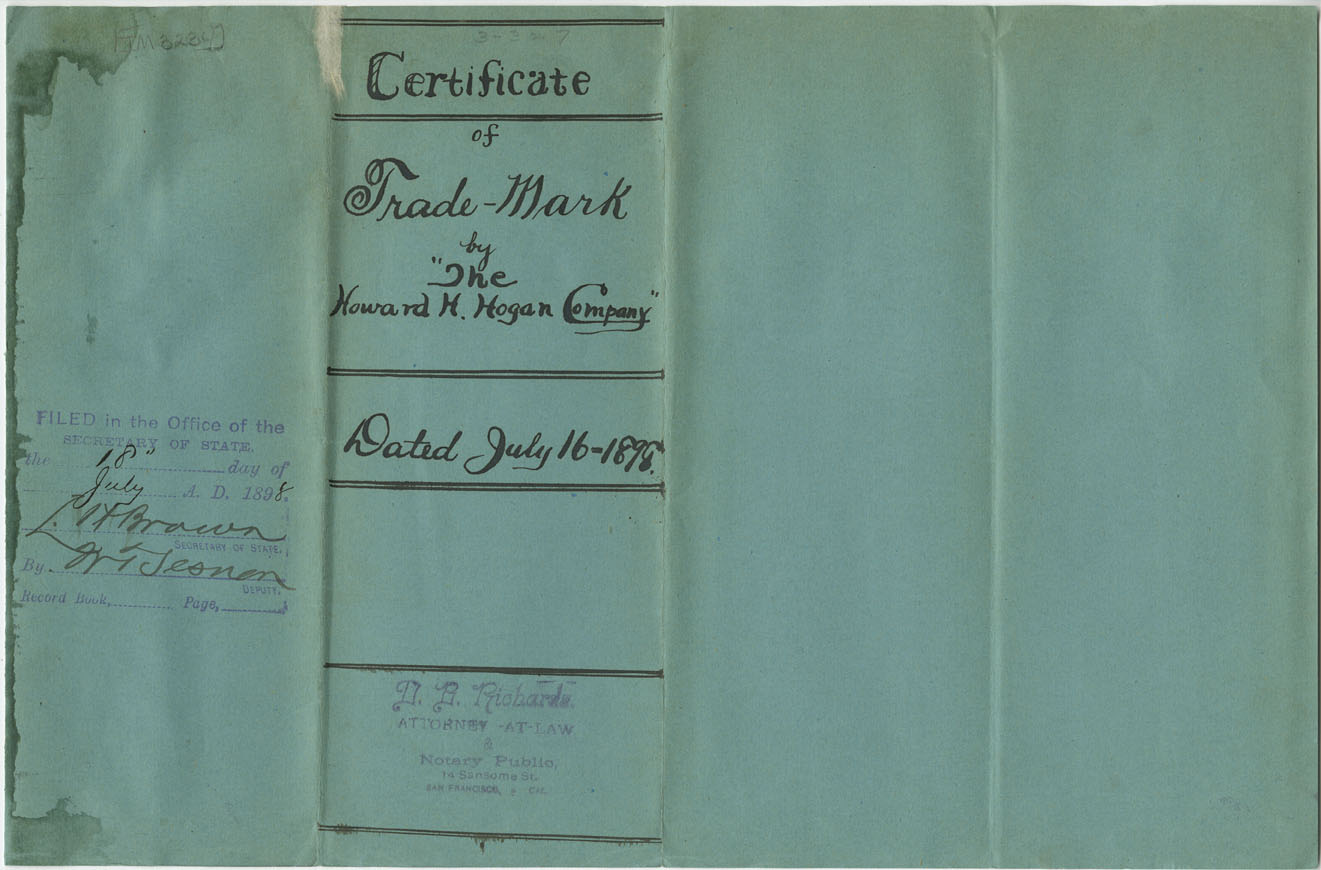 3-327
Certificate
of
Trade-Mark
by
"The
Howard H. Hogan Company"
Dated July 16-1898.
FILED in the Office of the
SECRETARY OF STATE,
the 18" day of
July A. D. 1898.
L. H Brown
SECRETARY OF STATE.
By
DEPUTY.
Record Book, Page,
D. B. Richards.
ATTORNEY-AT-LAW
&
Notary Public,
14 Sansome St.
SAN FRANCISCO, CAL.